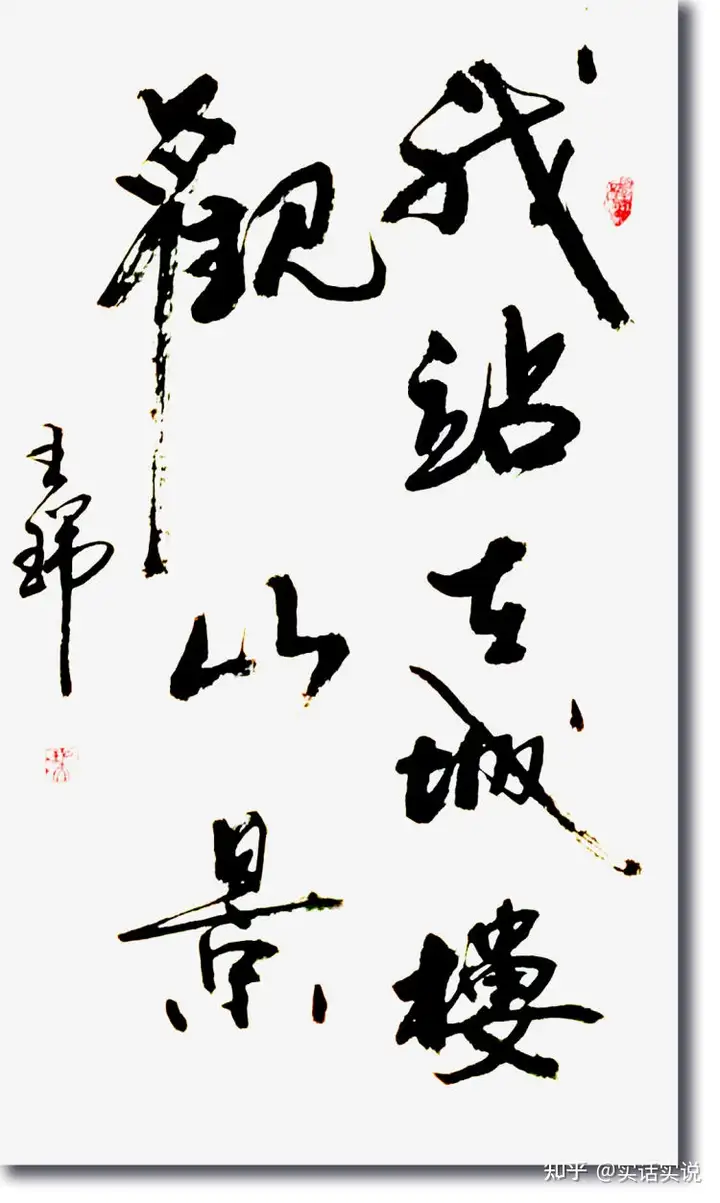 我站在城樓
觀山景
王瑞
知乎 @实话实说